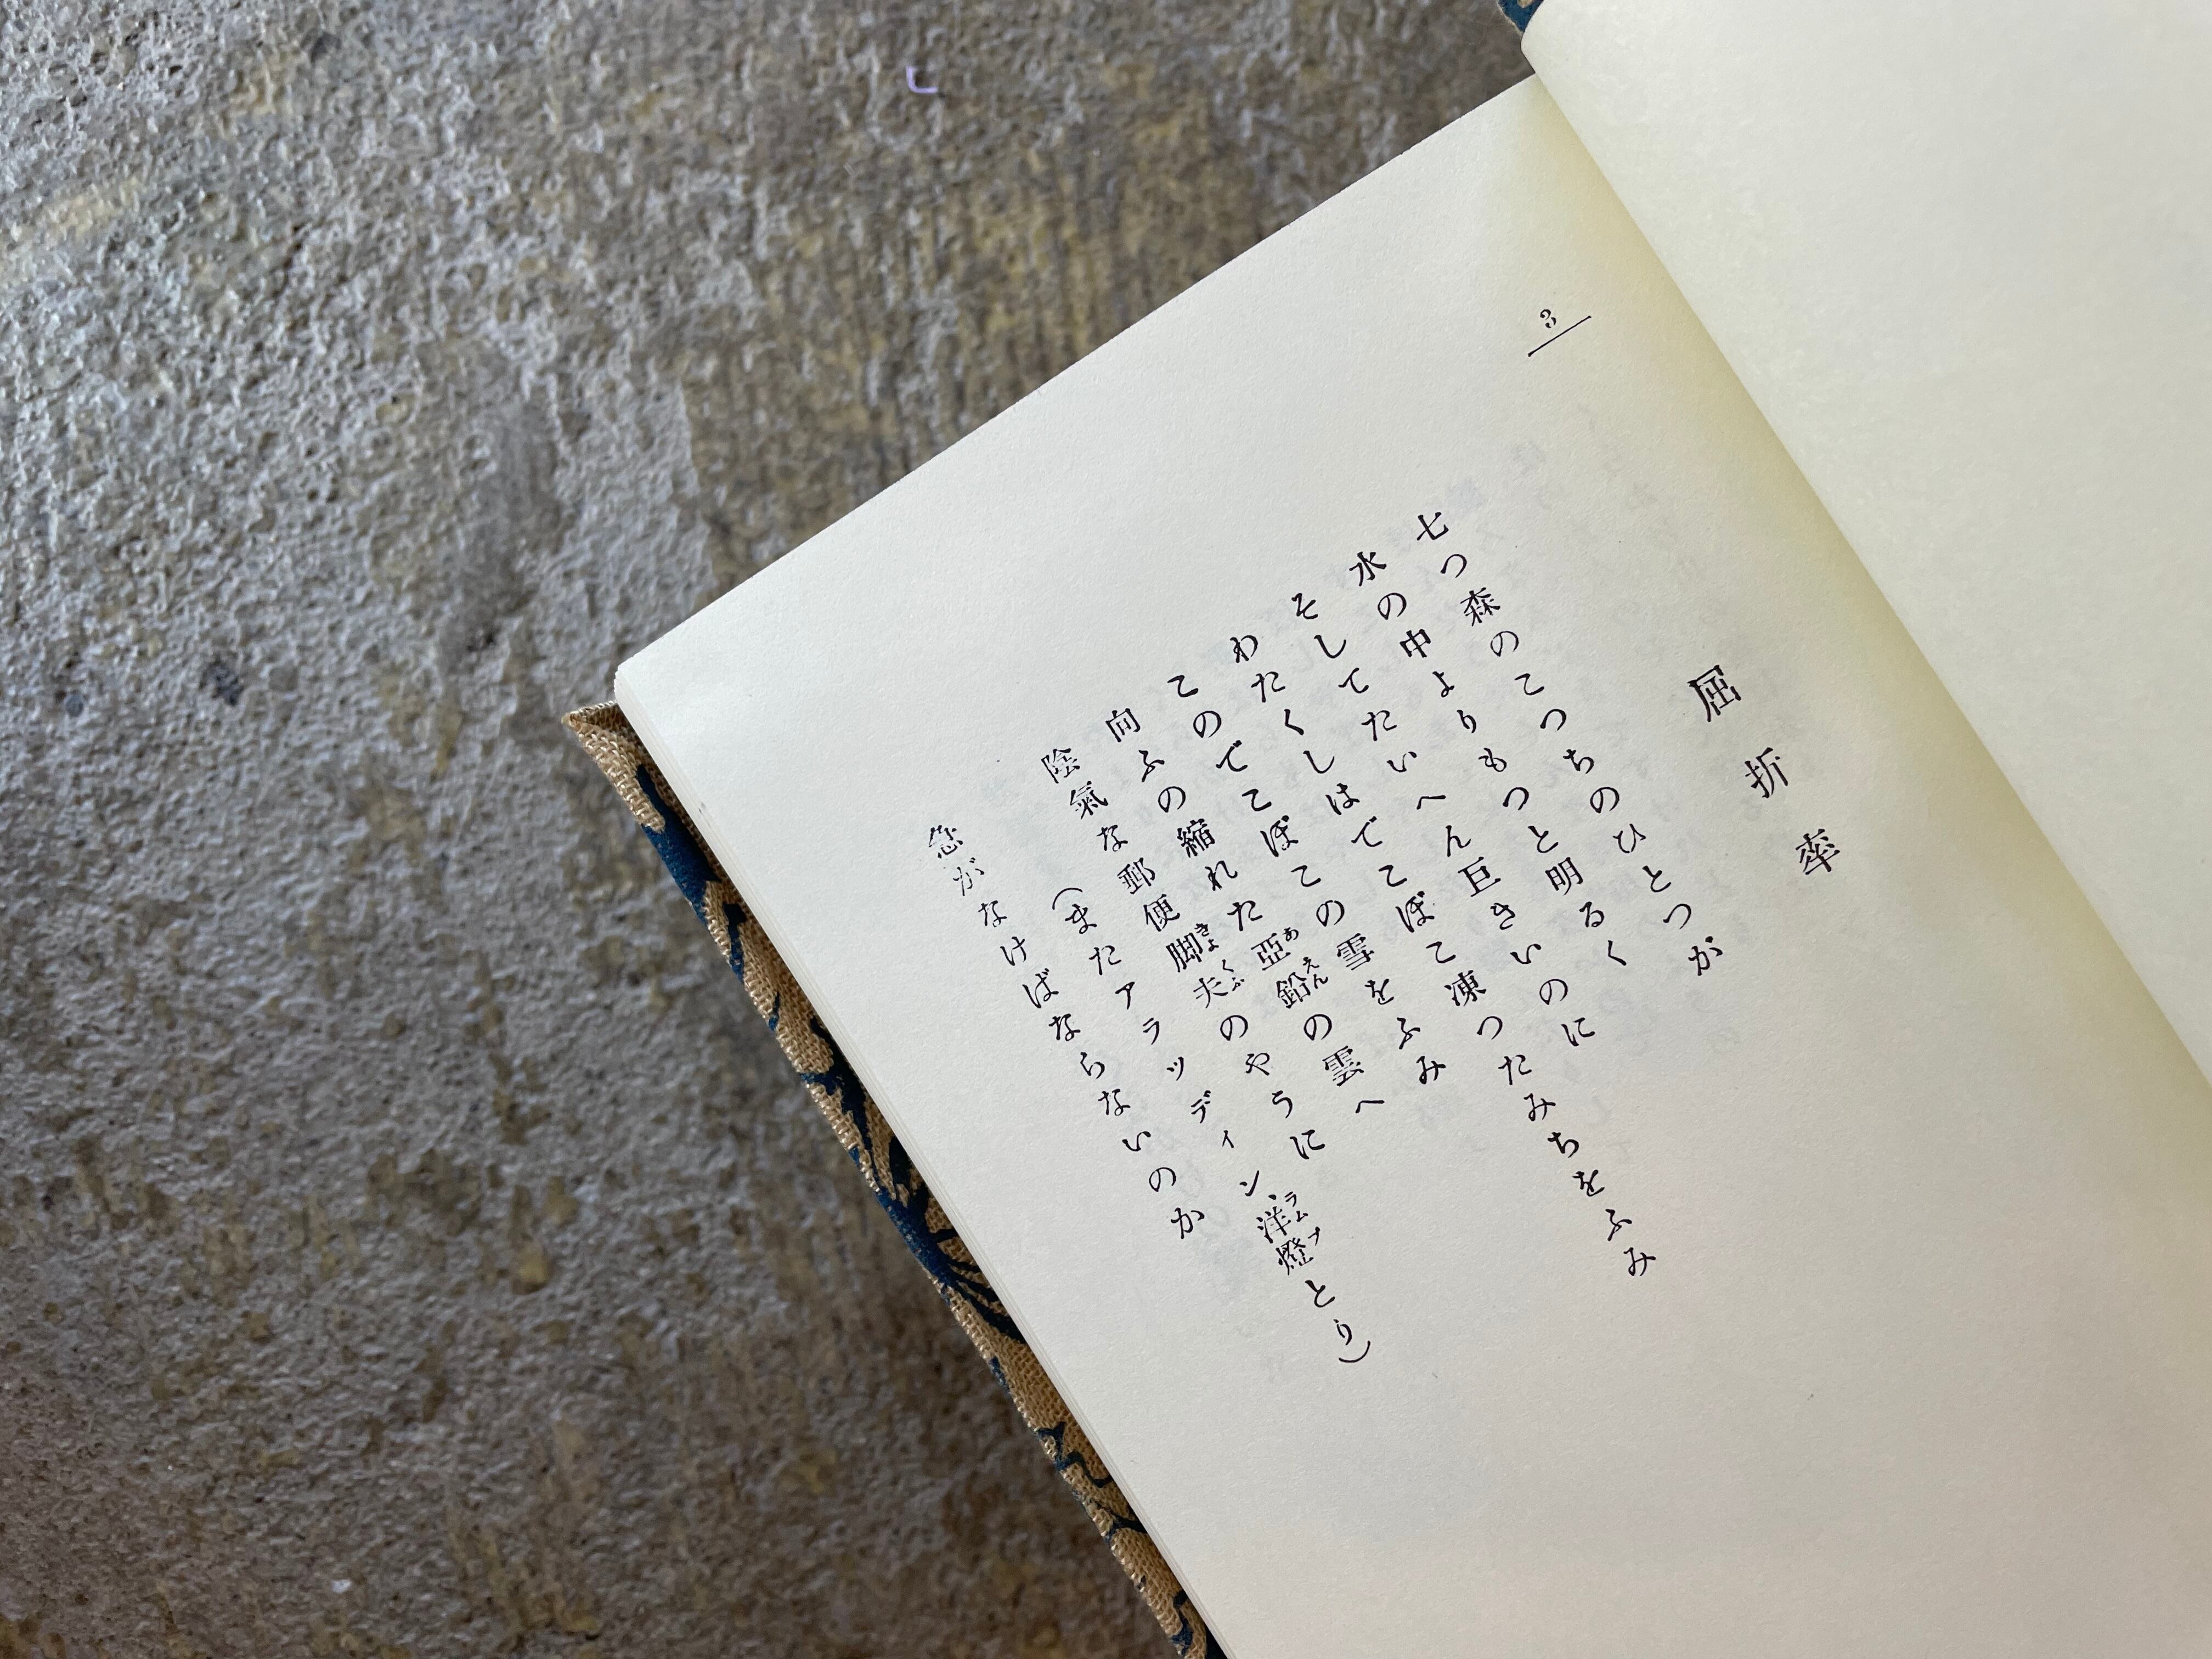 屈折率
七つ森のこつちのひとつが
水の中よりもつと明るく
そしてたいへん巨きいのに
わたくしはでこぼこ凍つたみちをふみ
このでこぼこの雪をふみ
向ふの縮れた亞鉛の雲へ
あえん
陰氣な郵便脚夫のやうに
きよくふ
(またアラツディン、洋燈とり)
ラムプ
急がなけばならないのか
3